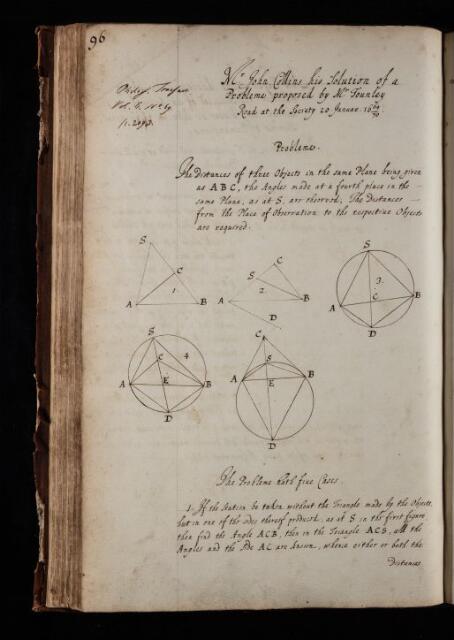 96
Philos. Transac.
Vol. 6. No. 69
p. 2093.
Mr. John Collins his Solution of a
Probleme proposed by Mr. Tounley
Read at the Society 20 Januar. 16 70
Probleme.
The Distances of three Objects in the same Plane being given
as ABC, the Angles made at a fourth place in the
same Plane, as at S, are observed; The Distances
from the Place of Observation to the respective Objects
are required.
S
C
A
1.
B
S
C
2.
A
B
D
S
3.
C
A
B
D
S
C
4
A
E
B
D
C
S
A
E
B
D
The Probleme hath five Cases.
1. If the Station be taken without the Triangle made by the Objects,
but in one of the sides thereof produced, as at S in the first figure
then find the Angle ACB, then in the Triangle ACS, all the
Angles and the side AC are known, whence either or both the
Distances